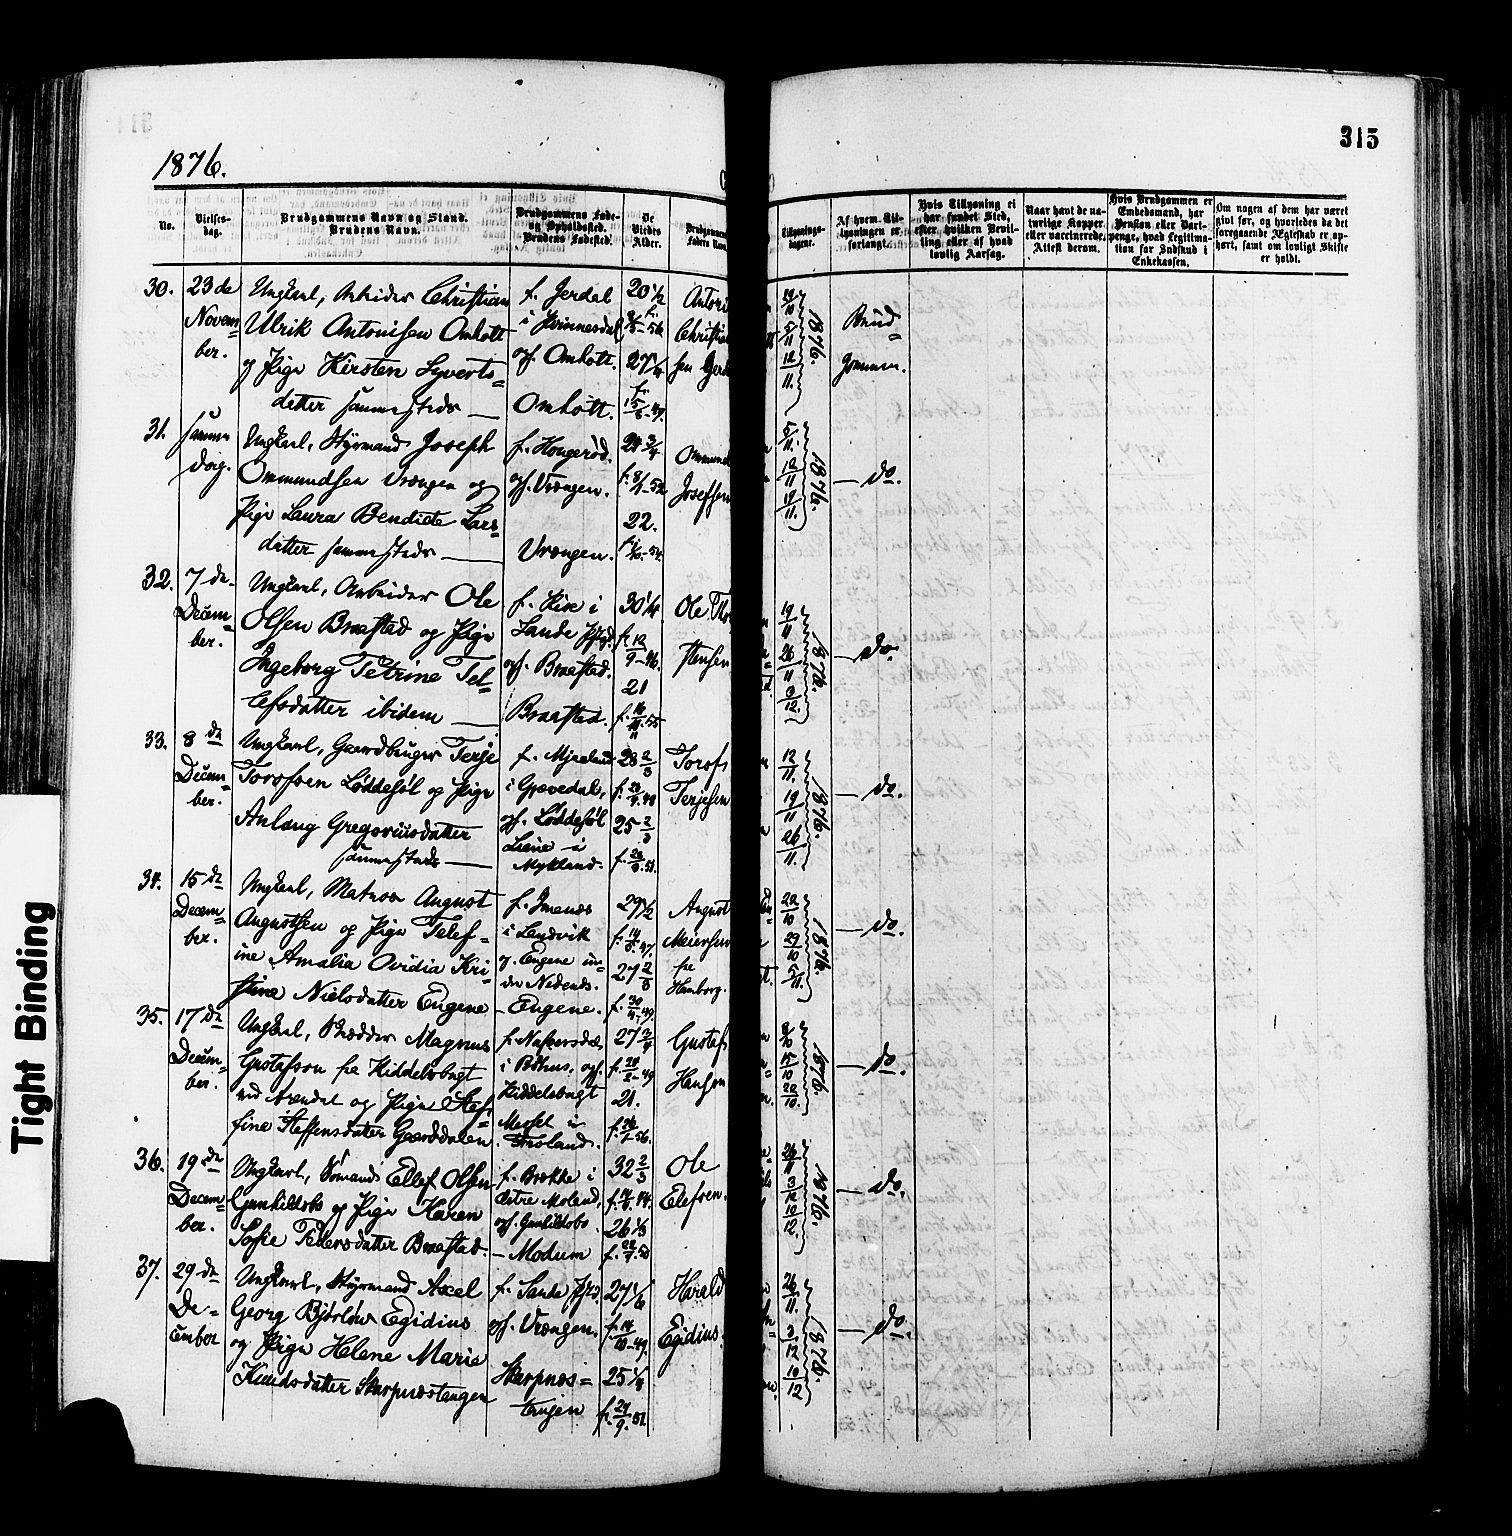 315
1876.
No.
Vielses-
dag.
Brudgommens Navn og Stand.
Brudens Navn.
Brudgommens Føde-
og Opholdssted.
Brudens Fødested.
De
Viedes
Alder.
Brudgommens
Faders Navn
Tillysnings-
dagene.
Af hvem Til-
lysningen er
forlangt.
Hvis Tillysning ei
har fundet Sted,
efter hvilken Bevil-
ling eller af hvad
lovlig Aarsag.
Naar havt de na-
turlige Kopper
eller vaccinerede,
Attest derom.
Hvis Brudgommen er
Embedsmand, har
Pension eller Vart-
penge, hvad Legitima-
tion for Indskud i
Enkekassen.
Om nogen af dem har været
gift før, og hvorledes da det
foregaaende Ægteskab er op-
hørt, samt om lovligt Skifte
er holdt.
30.
23de
Novem-
ber.
Ungkarl, Arbeider Christian
Ulrik Antonisen Omholt
og Pige Kirsten Syverts-
datter sammesteds
f. Jerdal
i Kvinnesdal
opf. Omholt.
Omholt.
20 1/2
27 1/4
Antoni
Christian
sen Jerd
19/10
5/11
12/11.
1876.
Brud-
gommen.
31.
samme
Dag.
Ungkarl, Styrmand Joseph
Ommundsen Vrængen og
Pige Laura Bendicte Lars-
datter sammesteds
f. Hougerød.
opf. Vrængen.
Vrængen.
24 3/4
22.
Ommund
Josefsen
5/11.
12/11
19/11.
1876.
do.
32.
7 de
Decem-
ber.
Ungkarl, Arbeider Ole
Olsen Braastad og Pige
Ingeborg Petrine Tel-
lefsdatter ibidem
f. Kise i
Sande Pstgd.
opf. Braastad.
Braastad.
30 1/4
f. 12/9-46.
21
Ole
stensen
19/11
26/11
3/12.
1876.
do.
33.
8 de
Decem-
ber.
Ungkarl, Gaardbruger Terje
Torofsen Løddesøl og Pige
Anlaug Gregoriusdatter
sammesteds
f. Mjaaland
i Grøvedal,
opf. Løddesøl
Liene i
Mykland.
28 2/3
25 2/3
Torofs
Terjesen
12/11.
19/11
26/11.
1876.
do.
34.
15 de
Decem-
ber.
Ungkarl, Matros August
Augustsen og Pige Telef-
ine Amalia Ovidia Kri-
stine Nielsdatter Eugene
f. Imenæs
i Landvik
og Eugene un-
der Nedenæs.
- Eugene.
29 1/2
27 2/3
August
Meiersen
fra
Hamborg.
22/10
29/10
5/11.
1876.
do.
35.
17 de
Decem-
ber.
Ungkarl, Skrædder Magnus
Gustafsson fra Kiddelsbugt
ved Arendal og Pige Stef-
fine Steffensdatter Gaarddalen.
i Bohus, opf.
Kiddelsbugt
Messel i
Frøland.
27 3/4
21.
Gustaf
Hansson
8/10
15/10
22/10.
1876.
do.
36.
19 de
Decem-
ber.
Ungkarl, Sømand Ellef Olsen
Gunhildsbo og Pige Karen
Sofie Pedersdatter Braastad.
f. Brekke i
Østre Moland,
opf. Gunhildsbo.
- Modum
32 2/3
26 1/3
Ole
Elefsen.
26/11
3/12
10/12.
1876.
do.
37.
29 de
De-
cember
Ungkarl, Styrmand Axel
Georg Bjørløw Egidius
og Pige Helene Marie
Knudsdatter Skarpnæstangen
f. Sande Pstgd.
opf. Vrængen.
Skarpnæs-
tangen
27 1/6
f. 14/10-49.
25 1/4
f. 24/9.51.
Harald
Egidius.
26/11.
3/12
10/12
1876.
do.
Tight Binding